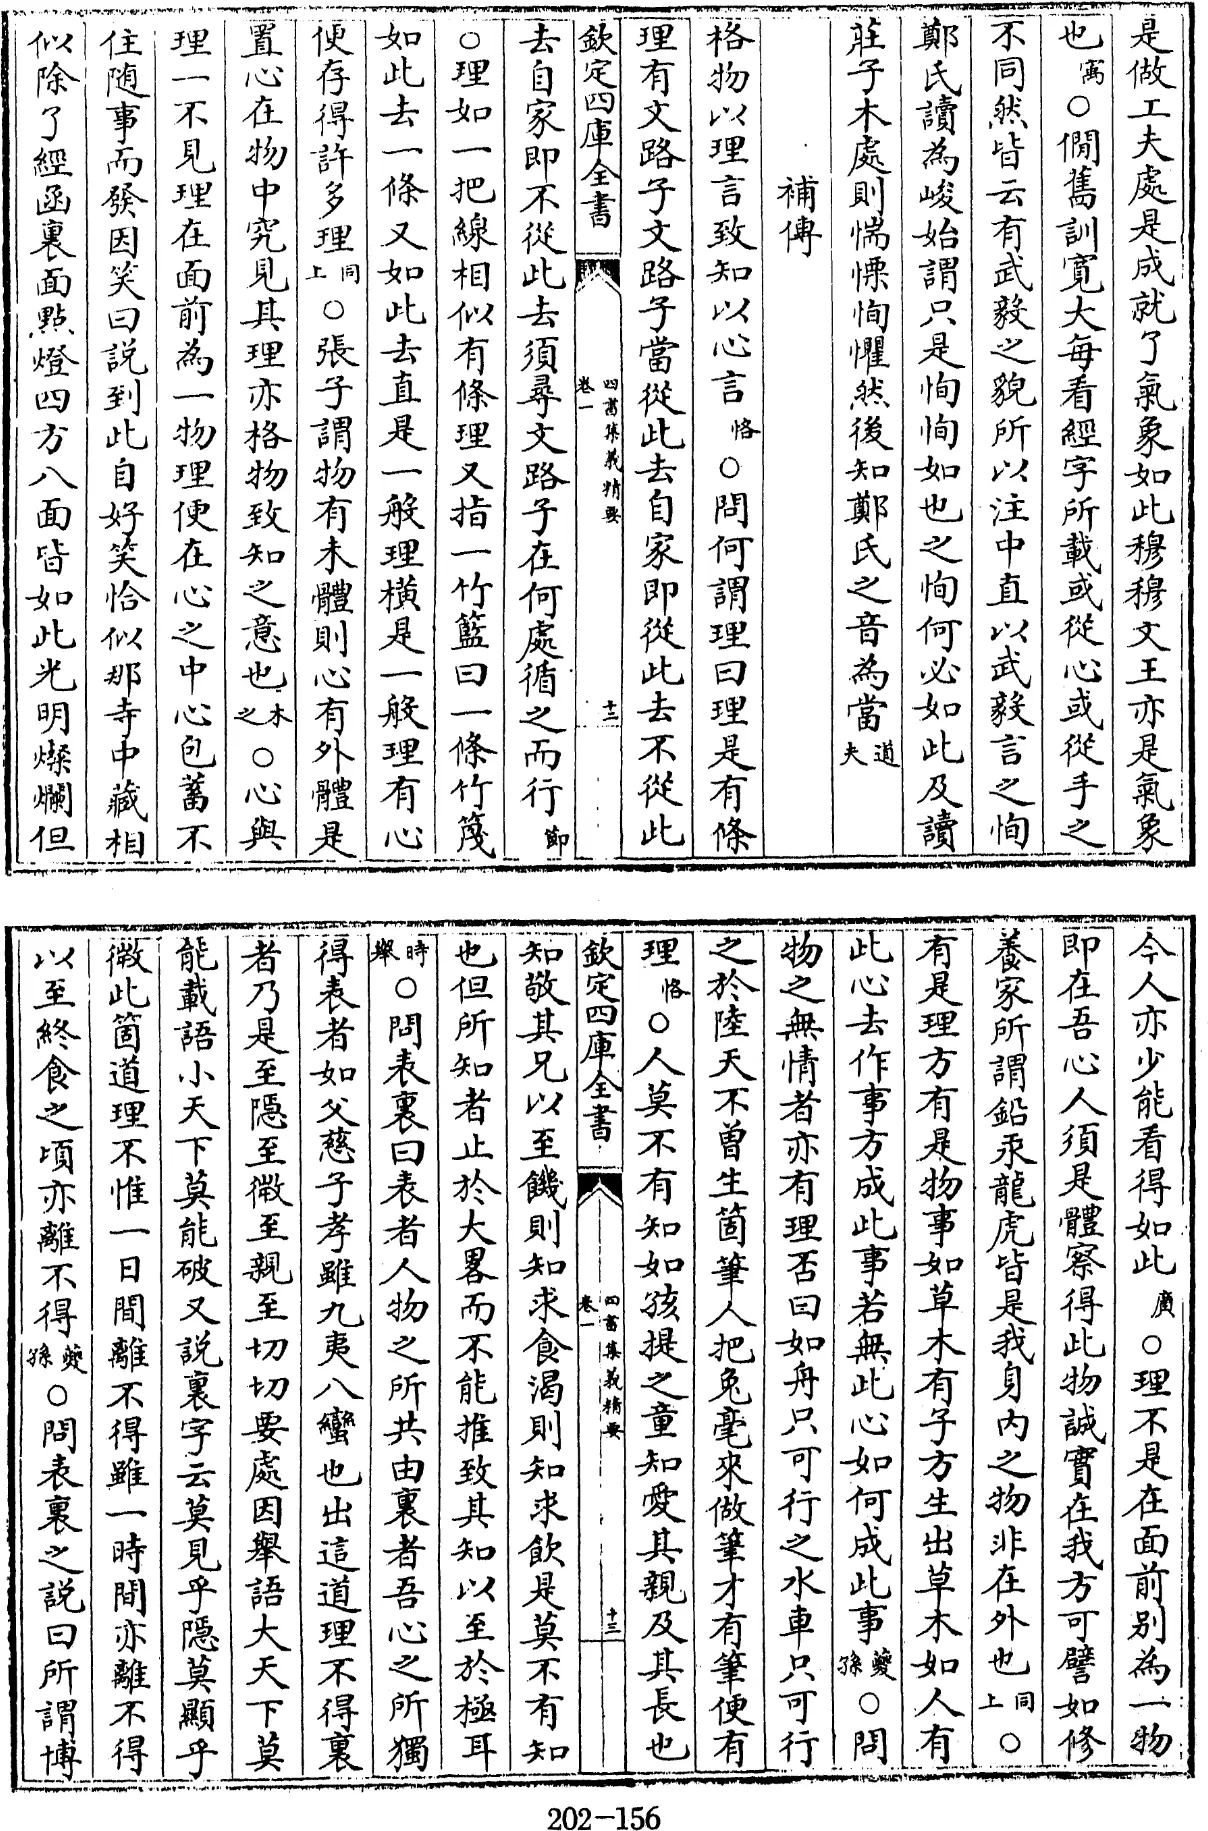 是做工夫處是成就了氣象如此穆穆文王亦是氣象
也㝢○僩舊訓寛大每看經字所載或從心或從手之
不同然皆云有武毅之貌所以注中直以武毅言之恂
鄭氏讀為峻始謂只是恂恂如也之恂何必如此及讀
莊子木處則惴慄恂懼然後知鄭氏之音為當道夫
補傳
格物以理言致知以心言恪○問何謂理曰理是有條
理有文路子文路子當從此去自家即從此去不從此
欽定四庫全書
四書集義精要
卷一
十二
去自家即不從此去須尋文路子在何處循之而行節
○理如一把線相似有條理又指一竹籃曰一條竹篾
如此去一條又如此去直是一般理横是一般理有心
便存得許多理同上○張子謂物有未體則心有外體是
置心在物中究見其理亦格物致知之意也木之○心與
理一不見理在面前為一物理便在心之中心包蓄不
住随事而發因笑曰説到此自好笑恰似那寺中藏相
似除了經函裏面點燈四方八面皆如此光明燦爛但
今人亦少能看得如此廣○理不是在面前别為一物
即在吾心人須是體察得此物誠實在我方可譬如修
養家所謂鉛汞龍虎皆是我身内之物非在外也同上○
有是理方有是物事如草木有子方生出草木如人有
此心去作事方成此事若無此心如何成此事夔孫○問
物之無情者亦有理否曰如舟只可行之水車只可行
之於陸天不曾生箇筆人把兔毫來做筆才有筆便有
理恪○人莫不有知如孩提之童知愛其親及其長也
欽定四庫全書
四書集義精要
卷一
十三
知敬其兄以至饑則知求食渴則知求飲是莫不有知
也但所知者止於大畧而不能推致其知以至於極耳
時舉○問表裏曰表者人物之所共由裏者吾心之所獨
得表者如父慈子孝雖九夷八蠻也出這道理不得裏
者乃是至隱至微至親至切切要處因舉語大天下莫
能載語小天下莫能破又説裏字云莫見乎隱莫顯乎
微此箇道理不惟一日間離不得雖一時間亦離不得
以至終食之頃亦離不得夔孫○問表裏之説曰所謂博
202-156